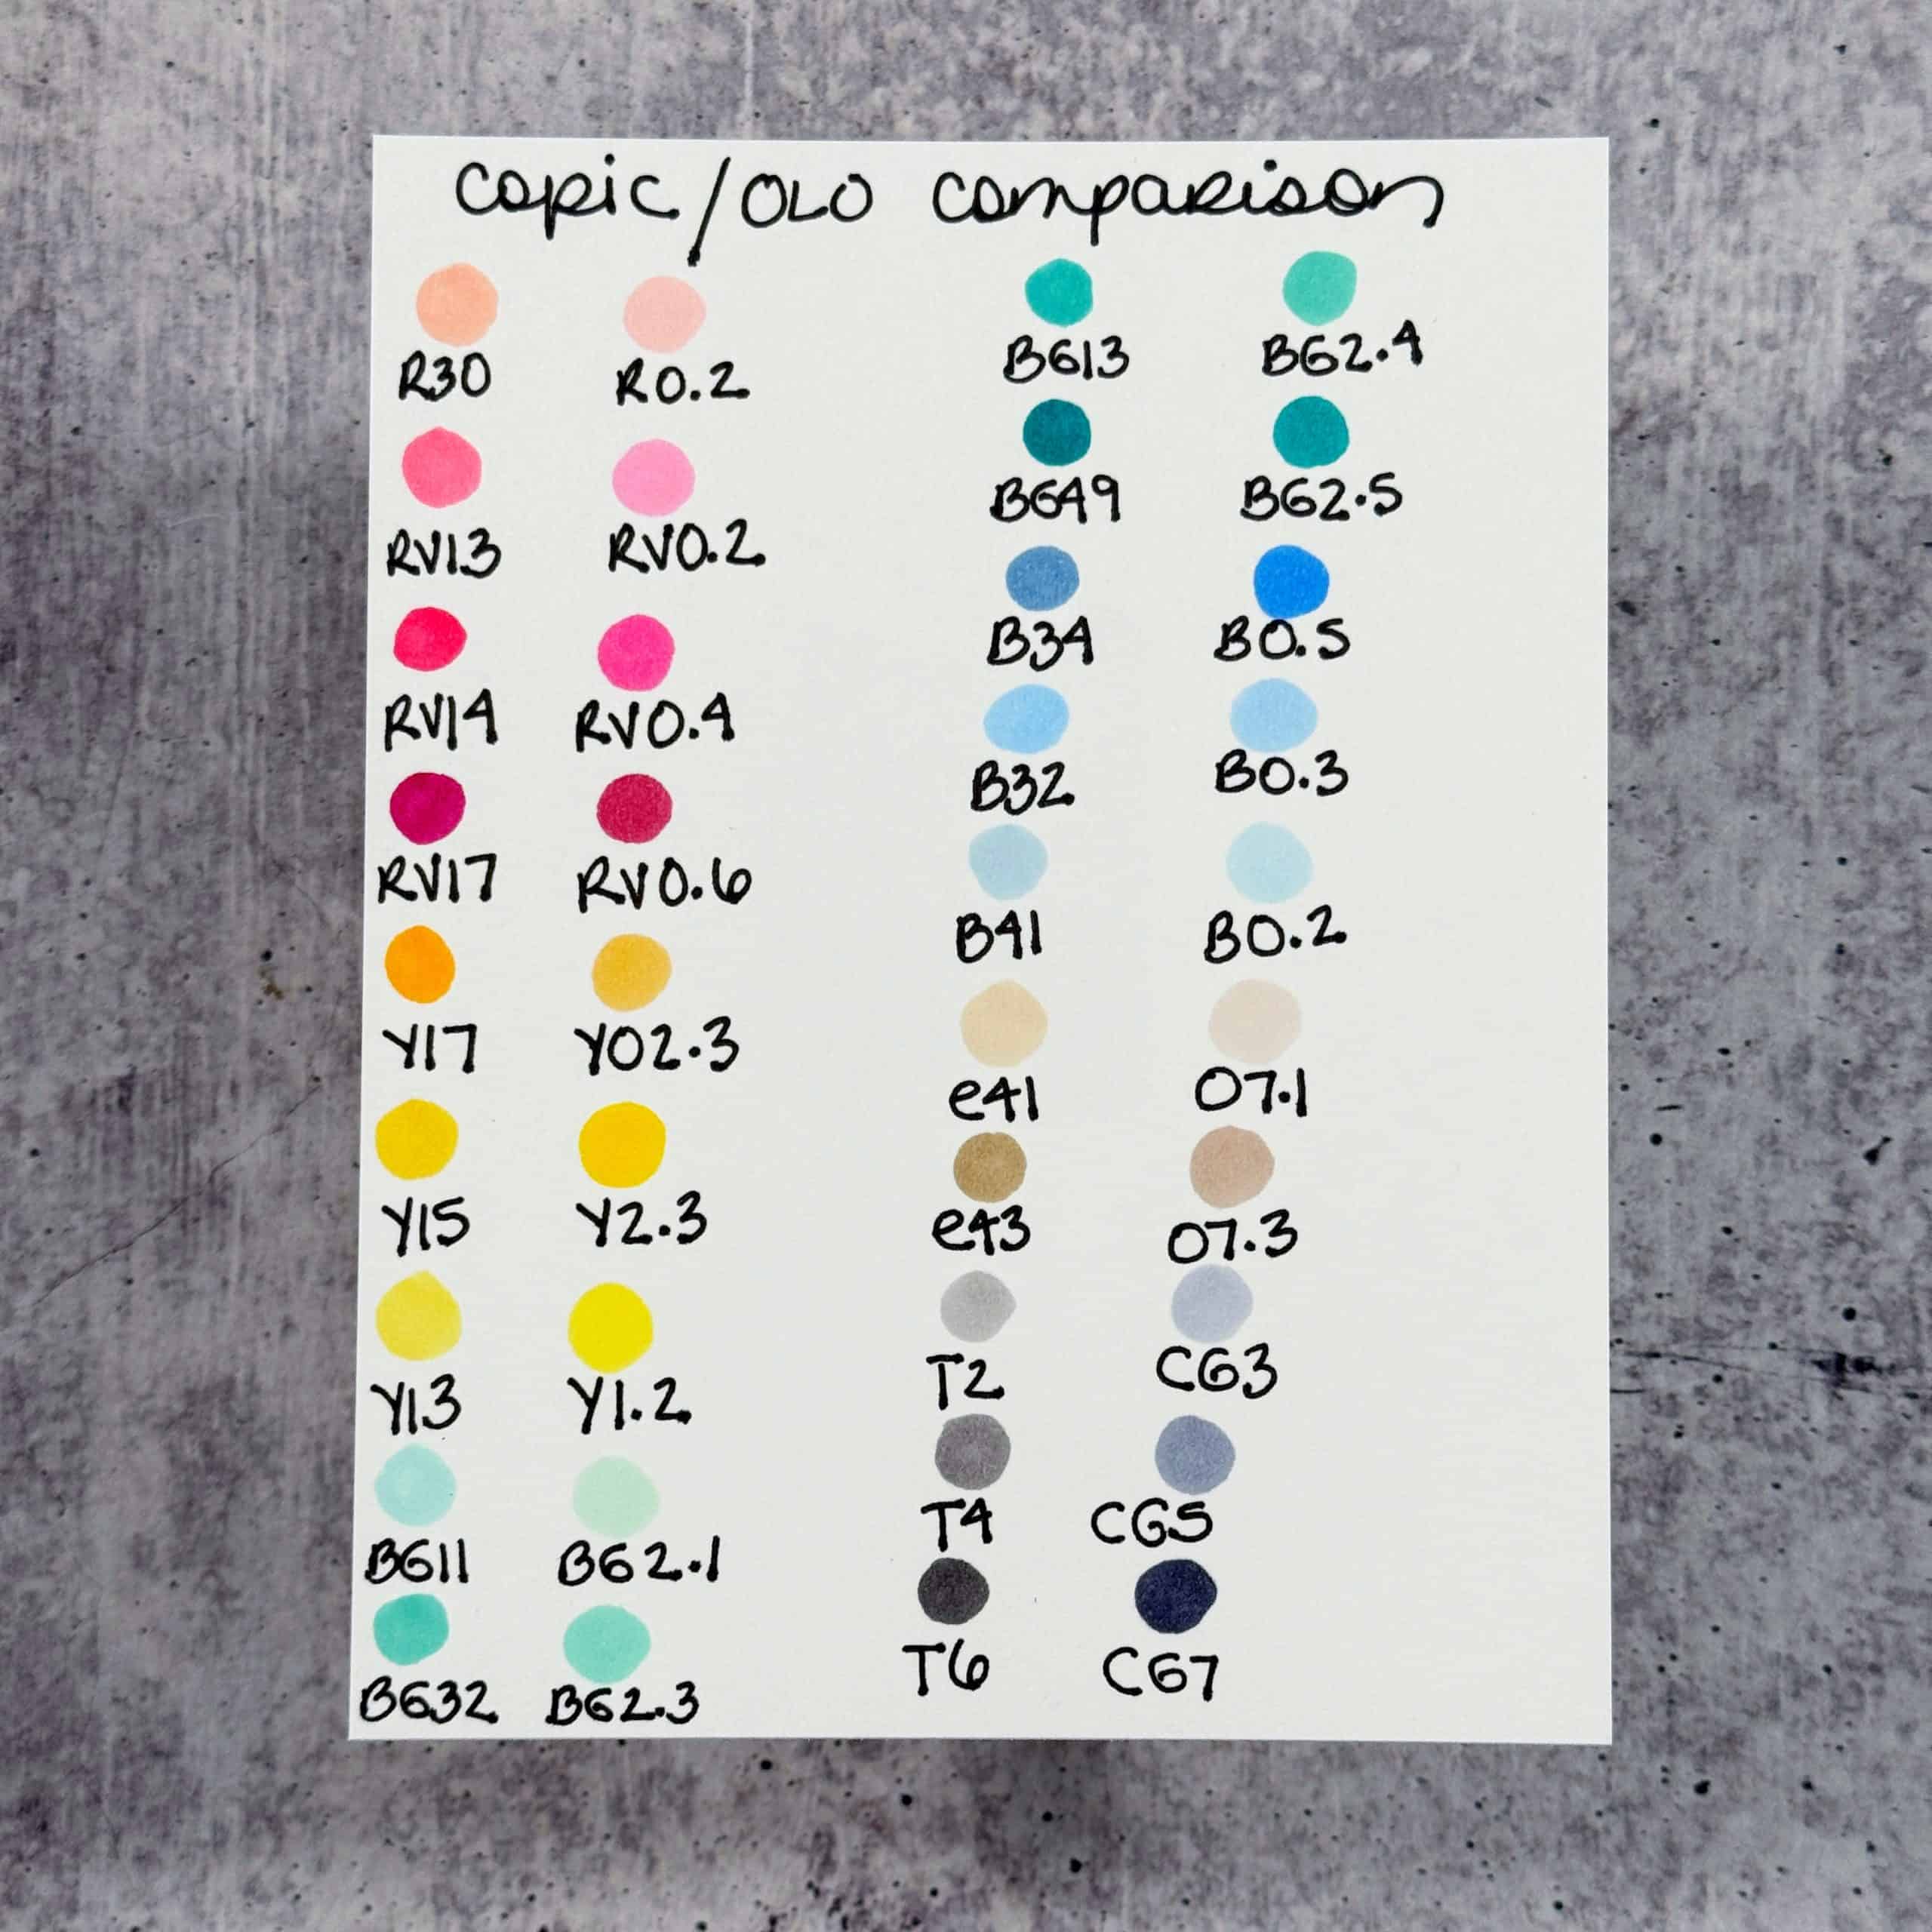 Copic/OLO Comparison
R30 R0.2
RV13 RV0.2
RV14 RV0.4
RV17 RV0.6
Y17 YO2.3
Y15 Y2.3
Y13 Y1.2
BG11 BG2.1
BG32 BG2.3
BG13 BG2.4
BG49 BG2.5
B34 B0.5
B32 B0.3
B41 B0.2
e41 O7.1
e43 O7.3
T2 CG3
T4 CG5
T6 CG7